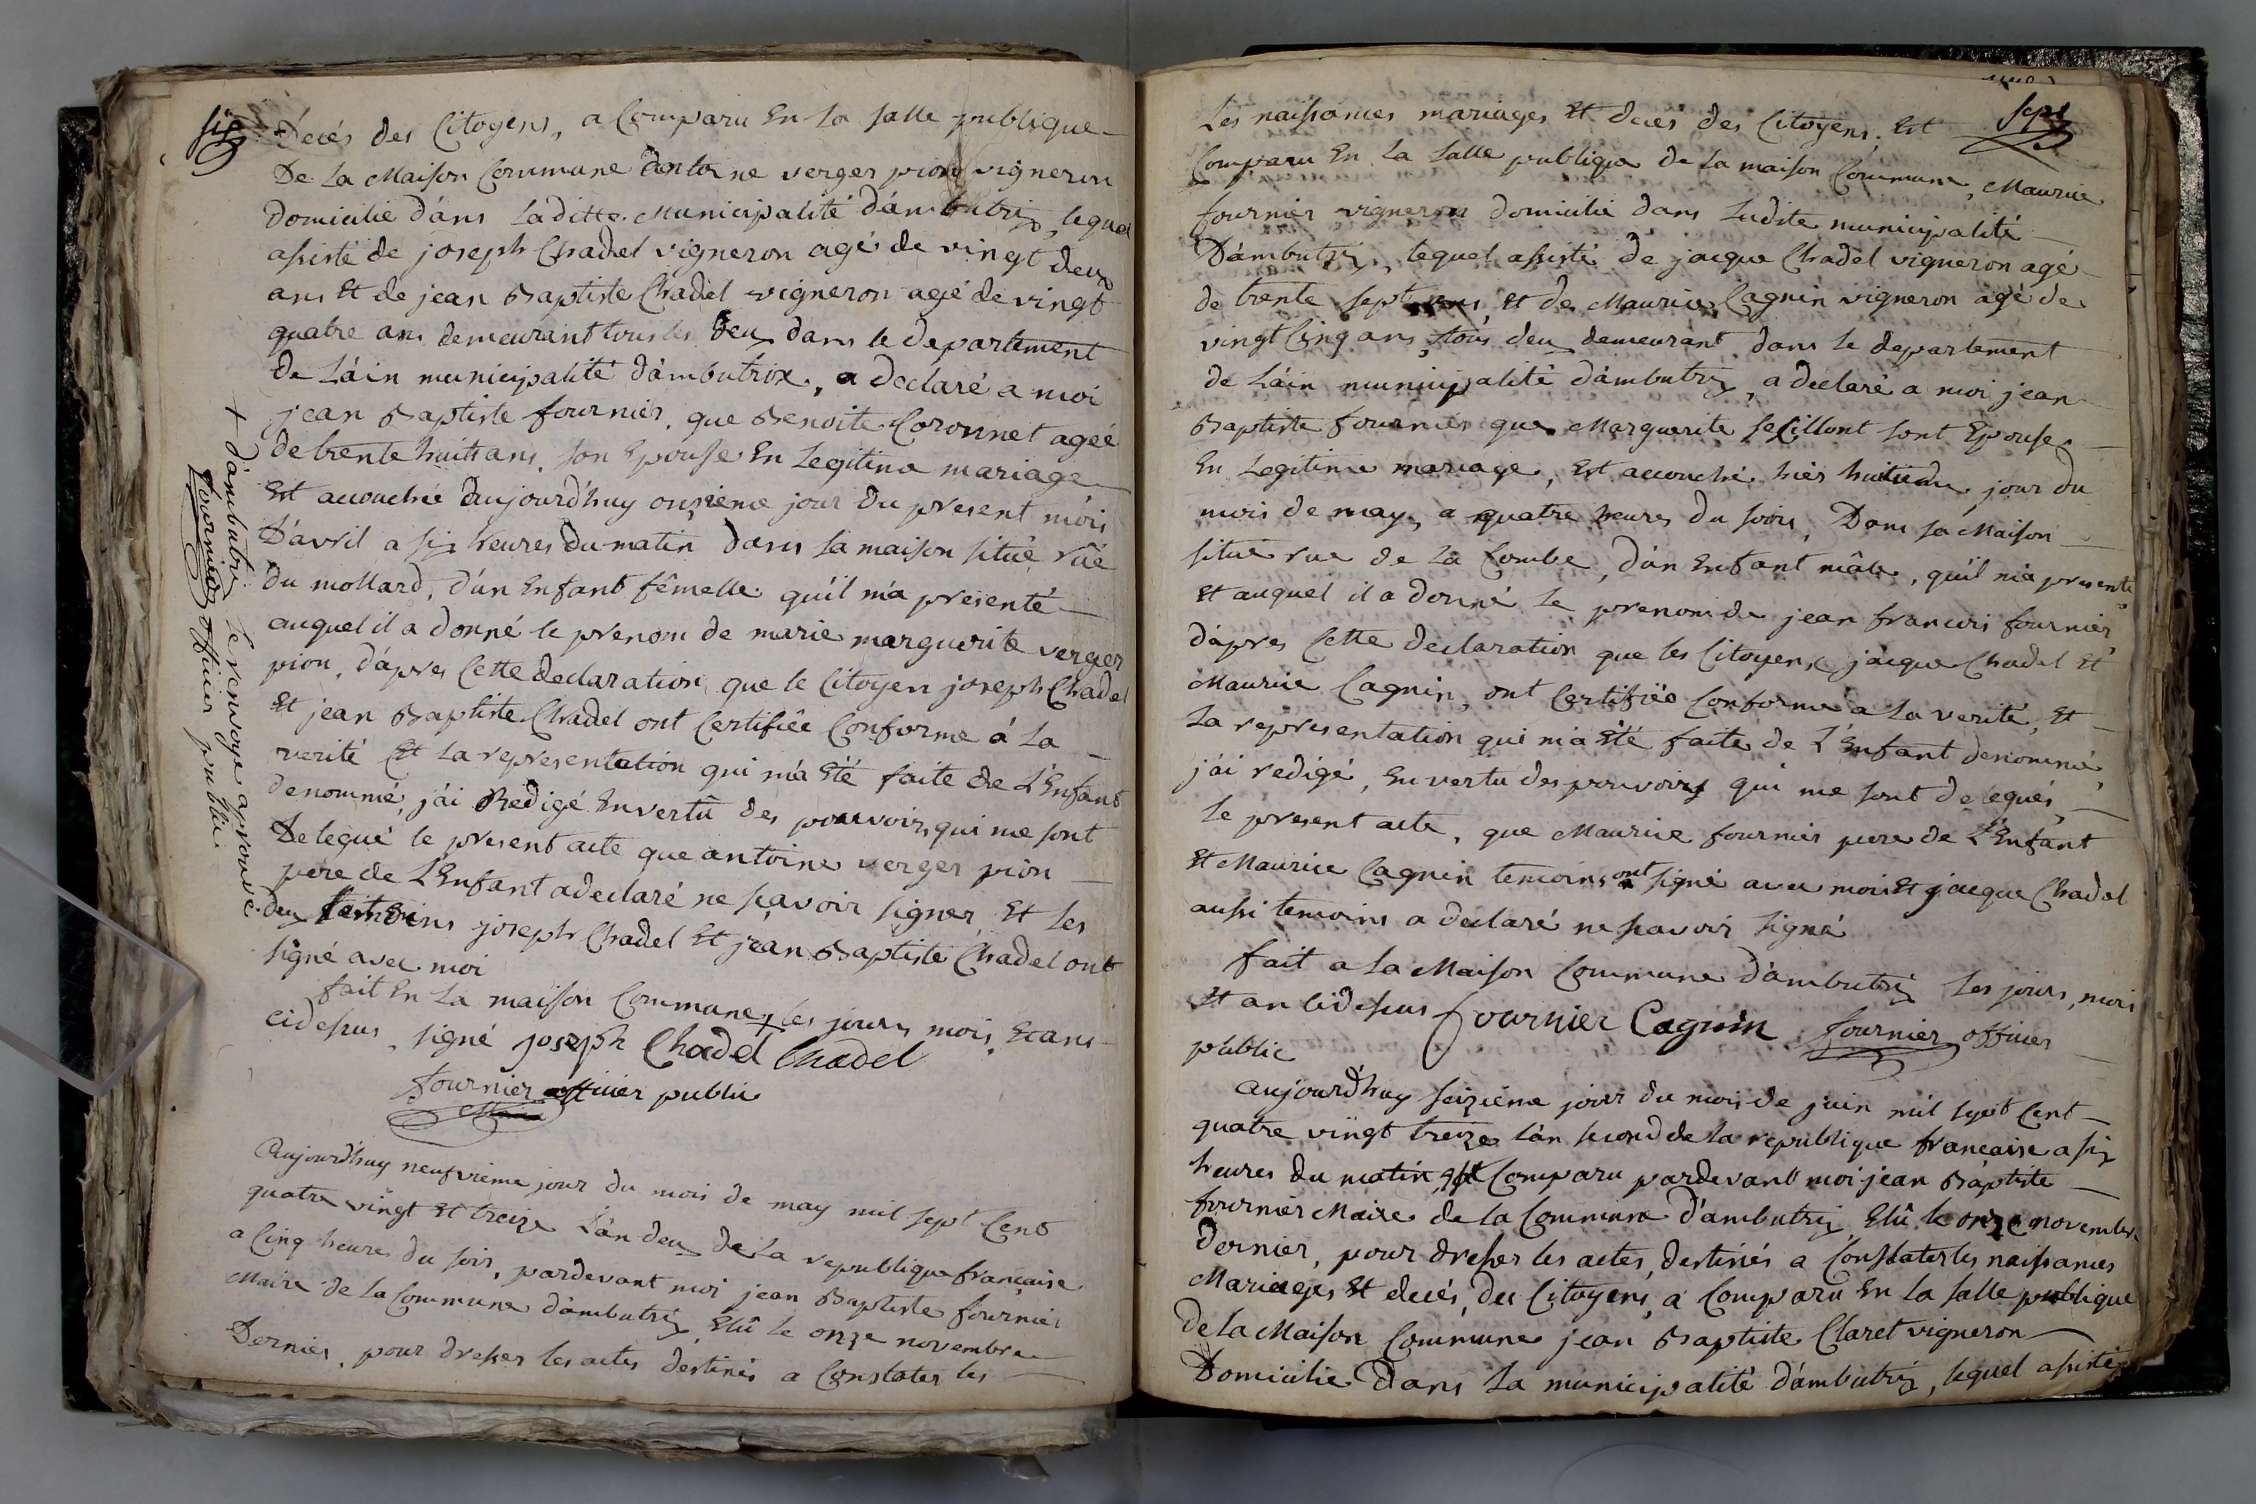 six
Décés des Citoyens, a Comparu En la salle publique
De La Maison Commune antoine verger pion vigneron
domicilié d'ans laditte Municipalité d'ambutrix, lequel
assisté de joseph Chadel vigneron agé de vingt deux
ans Et de jean Baptiste Chadel vigneron agé de vingt
quatre ans demeurant tous les deux dans le departement
de L'áin municipalité d'ambutrix, a declaré a moi
jean Baptiste fournier, que Benoite Coronnet ageé
de trente huit ans, son Epouse En Legitime mariage
Est accouchée aujourd'huy onzieme jour du present mois
D'avril a six heures du matin dans sa maison situé rüe
du mollard, d'un Enfant fêmelle qu'il m'a presenté
auquel il a donné le prenom de marie marguerite verger
pion, d'apres Cette declaration, que le Citoyen joseph Chadel
Et jean Baptiste Chadel ont Certifiée Conforme á la
verité Et La representation qui m'a Eté faite de L'Enfant
denommé, j'ái Redigé En vertû des pouvoirs qui me sont
Delegué le present acte que antoine verger pion
pere de L'Enfant a declaré ne sçavoir signer, Et les
deux temoins joseph Chadel Et jean Baptiste Chadel ont
signé avec moi
fait En La maison Commune + les jours, mois, Et ans
cidessus, signé joseph Chadel Chadel
fournier officier public
+ d'ambutrix le renvoye approuvé
fournier officier public
Aujourd'huy neufvieme jour du mois de may mil sept Cent
quatre vingt Et treize L'an deux de la republique française
a Cinq heures du soir, pardevant moi jean Baptiste fournier
Maire de la Commune d'ambutrix, Elû le onze novembre
Dernier, pour dresser les actes destinés a Constater les
sept
Les naissances mariages Et decés des Citoyens, Est
Comparu En la salle publique de la maison Commune, Maurice
fournier vigneron domicilié dans ladite municipalité
D'ambutrix, lequel assisté de jacque Chadel vigneron agé
de trente sept ans, Et de Maurice Cagnin vigneron agé de
vingt Cinq ans, tous deux demeurant dans le departement
de L'áin municipalité d'ambutrix, a declaré a moi jean
Baptiste fournier que Marguerite sont Epouse
En Legitime mariage, Est accouché hier huitieme jour du
mois de may, a quatre heures du soir, Dans sa Maison
situé rue de la Combe, d'un Enfant mâle, qu'il m'a presenté
Et auquel il a donné le prenom de jean francois fournier
d'apres Cette declaration que les Citoyens jacque Chadel Et
Maurice Cagnin, ont Certifiée Conforme a la verité, Et
La representation qui m'a Eté faite de L'Enfant denommé,
j'ái redigé, En vertu des pouvoirs qui me sont delegués,
le present acte, que Maurice fournier pere de L'Enfant
Et Maurice Cagnin temoins ont signé avec moi Et jacque Chadel
aussi temoins a declaré ne scavoir signé
fait a La Maison Commune d'ambutrix les jours, mois
Et an cidessus fournier Cagnin fournier officier
public
aujourd'huy seizième jour du mois de juin mil sept Cent
quatre vingt treize l'án second de la republique francaise a six
heures du matin Est Comparu pardevant moi jean Baptiste
fournier Maire de la Commune d'ambutrix Elû le onze novembre
dernier, pour dresser les actes, destinés a Constater les naissances
Mariages Et decés, des Citoyens, a Comparu En la salle publique
de la Maison Commune jean Baptiste Claret vigneron
Domicilie Dans La municipalité d'ambutrix, lequel assisté